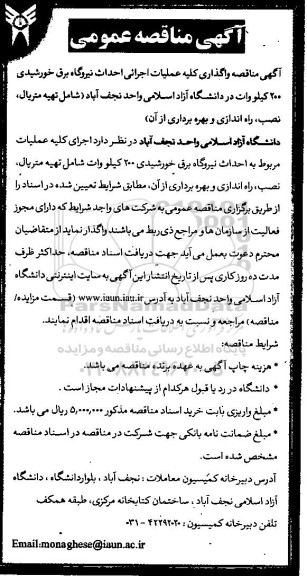 آگهی مناقصه عمومی
آگهی مناقصه واگذاری کلیه عملیات اجرائی احداث نیروگاه برق خورشیدی
۲۰۰ کیلو وات در دانشگاه آزاد اسلامی واحد نجف آباد (شامل تهیه متریال،
نصب، راه اندازی و بهره برداری از آن)
دانشگاه آزاد اسلامی واحد نجف آباد در نظر دارد اجرای کلیه عملیات
مربوط به احداث نیروگاه برق خورشیدی ۲۰۰ کیلو وات شامل تهیه متریال،
نصب، راه اندازی و بهره برداری از آن، مطابق شرایط تعیین شده در اسناد را
از طریق برگزاری مناقصه عمومی به شرکت های واجد شرایط که دارای مجوز
فعالیت از سازمان ها و مراجع ذی ربط می باشند واگذار نماید از متقاضیان
محترم دعوت بعمل می آید جهت دریافت اسناد مناقصه، حداکثر ظرف
مدت ده روز کاری پس از تاریخ انتشار این آگهی به سایت اینترنتی دانشگاه
آزاد اسلامی واحد نجف آباد به آدرس www.iaun.iau.ir (قسمت مزایده/
مناقصه) مراجعه و نسبت به دریافت اسناد مناقصه اقدام نمایند.
ParsNamadData
شرایط مناقصه:
پایگاه اطلاع رسانی مناقصه و مزایده
* هزینه چاپ آگهی به عهده برنده مناقصه می باشد.
* دانشگاه در رد یا قبول هر کدام از پیشنهادات مجاز است.
* مبلغ واریزی بابت خرید اسناد مناقصه مذکور ۵,۰۰۰,۰۰۰ ریال می باشد.
* مبلغ ضمانت نامه بانکی جهت شرکت در مناقصه در اسناد مناقصه
مشخص شده است.
آدرس دبیرخانه کمیسیون معاملات: نجف آباد، بلوار دانشگاه، دانشگاه
آزاد اسلامی نجف آباد، ساختمان کتابخانه مرکزی، طبقه همکف
تلفن دبیرخانه کمیسیون: ۴۲۲۹۲۰۲۰ - ۰۳۱
Email:monaghese@iaun.ac.ir